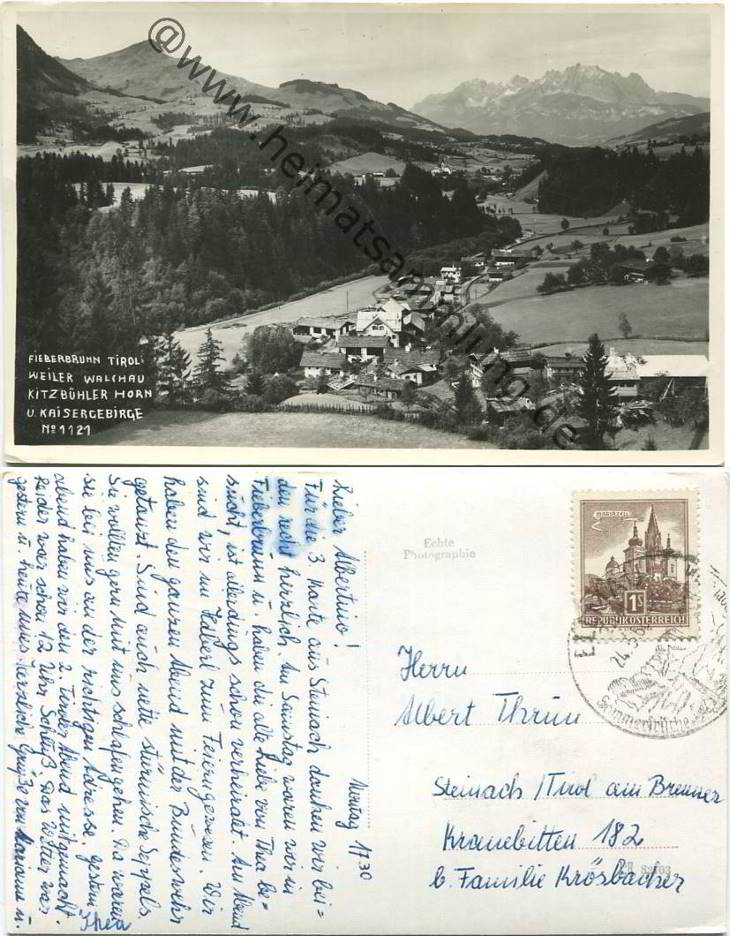 @www.heimatsammlung.de
FIEBERBRUNN TIROL
WEILER WALCHAU
KITZBÜHLER HORN
U. KAISERGEBIRGE
No 1121
Montag 17 30
Lieber Albertino!
Für die 3 Karte aus Steinach danken wir bei=
den recht herzlich. Am Samstag waren wir in
Fieberbrunn u. haben die alte Liebe von Thea be=
sucht, ist allerdings schon verheiratet. Am Abend
sind wir im Hotel zum Feiern gewesen. Wir
haben den ganzen Abend mit der Bundeswehr
getanzt. Sind auch nette stürmische Seppels.
Sie wollten gern mit uns schlafen gehen. Da waren
sie bei uns an der richtigen Adresse. gestern
abend haben wir den 2. Tiroler Abend mitgemacht.
Leider war schon 12 Uhr Schluß. Das Wetter war
gestern u. heute mies. Herzliche Grüße von u.
Thea
Echte
Photographie
MARIAZELL
1S
REPUBLIK ÖSTERREICH
24.5.
Sommerfrische
Herrn
Albert Thrun
Steinach/Tirol am Brenner
Kranebitten 182
b. Familie Krösbacher